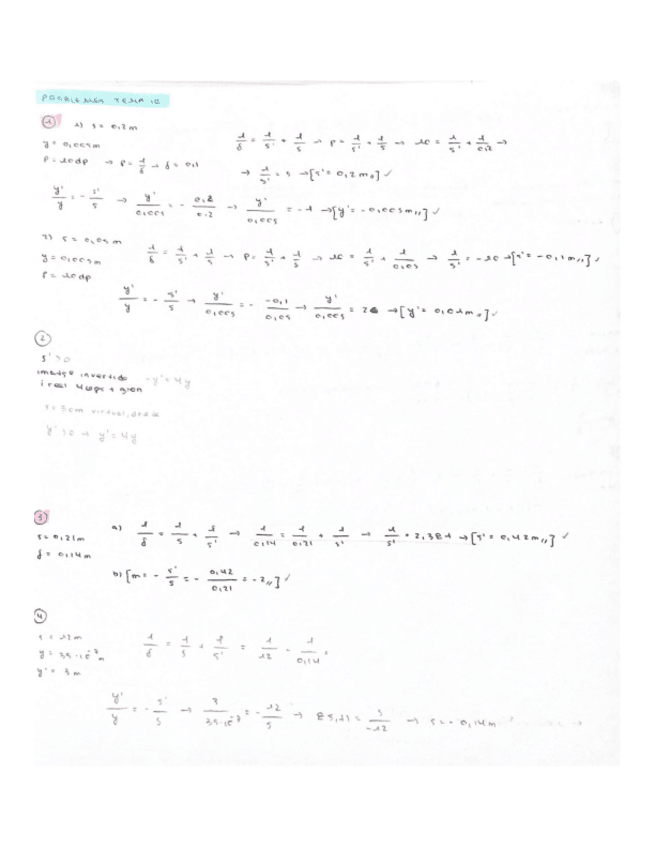 PROBLEMAS TEMA 10
1 1) s = 0,2m
y = 0,005m
P = 10dp → P = 1/f → f = 0,1
1/f = 1/s' + 1/s → P = 1/s' + 1/s → 10 = 1/s' + 1/0,2 →
→ 1/s' = 5 → [s' = 0,2m,,] ✓
y'/y = - s'/s → y'/0,005 = - 0,2/0,2 → y'/0,005 = -1 → [y' = -0,005m,,] ✓
2) s = 0,05m
y = 0,005m
P = 10dp
1/f = 1/s' + 1/s → P = 1/s' + 1/s → 10 = 1/s' + 1/0,05 → 1/s' = -10 → [s' = -0,1m,,] ✓
y'/y = - s'/s → y'/0,005 = - -0,1/0,05 → y'/0,005 = 2 → [y' = 0,01m,,] ✓
2
s' > 0
imagen invertida -y' = 4y
i real
s = 5cm virtual,
y' > 0 → y' = 4y
3
s = 0,21m
f = 0,14m
a) 1/f = 1/s + 1/s' → 1/0,14 = 1/0,21 + 1/s' → 1/s' = 2,381 → [s' = 0,42m,,] ✓
b) [m = - s'/s = - 0,42/0,21 = -2,,] ✓
4
= 12m
y = 35·10⁻³m
y' = 3m
1/f = 1/s + 1/s' = 1/12 - 1/0,14 =
y'/y = - s'/s → 3/35·10⁻³ = - 12/s → 85,71 = s/-12 → s = - 0,14m